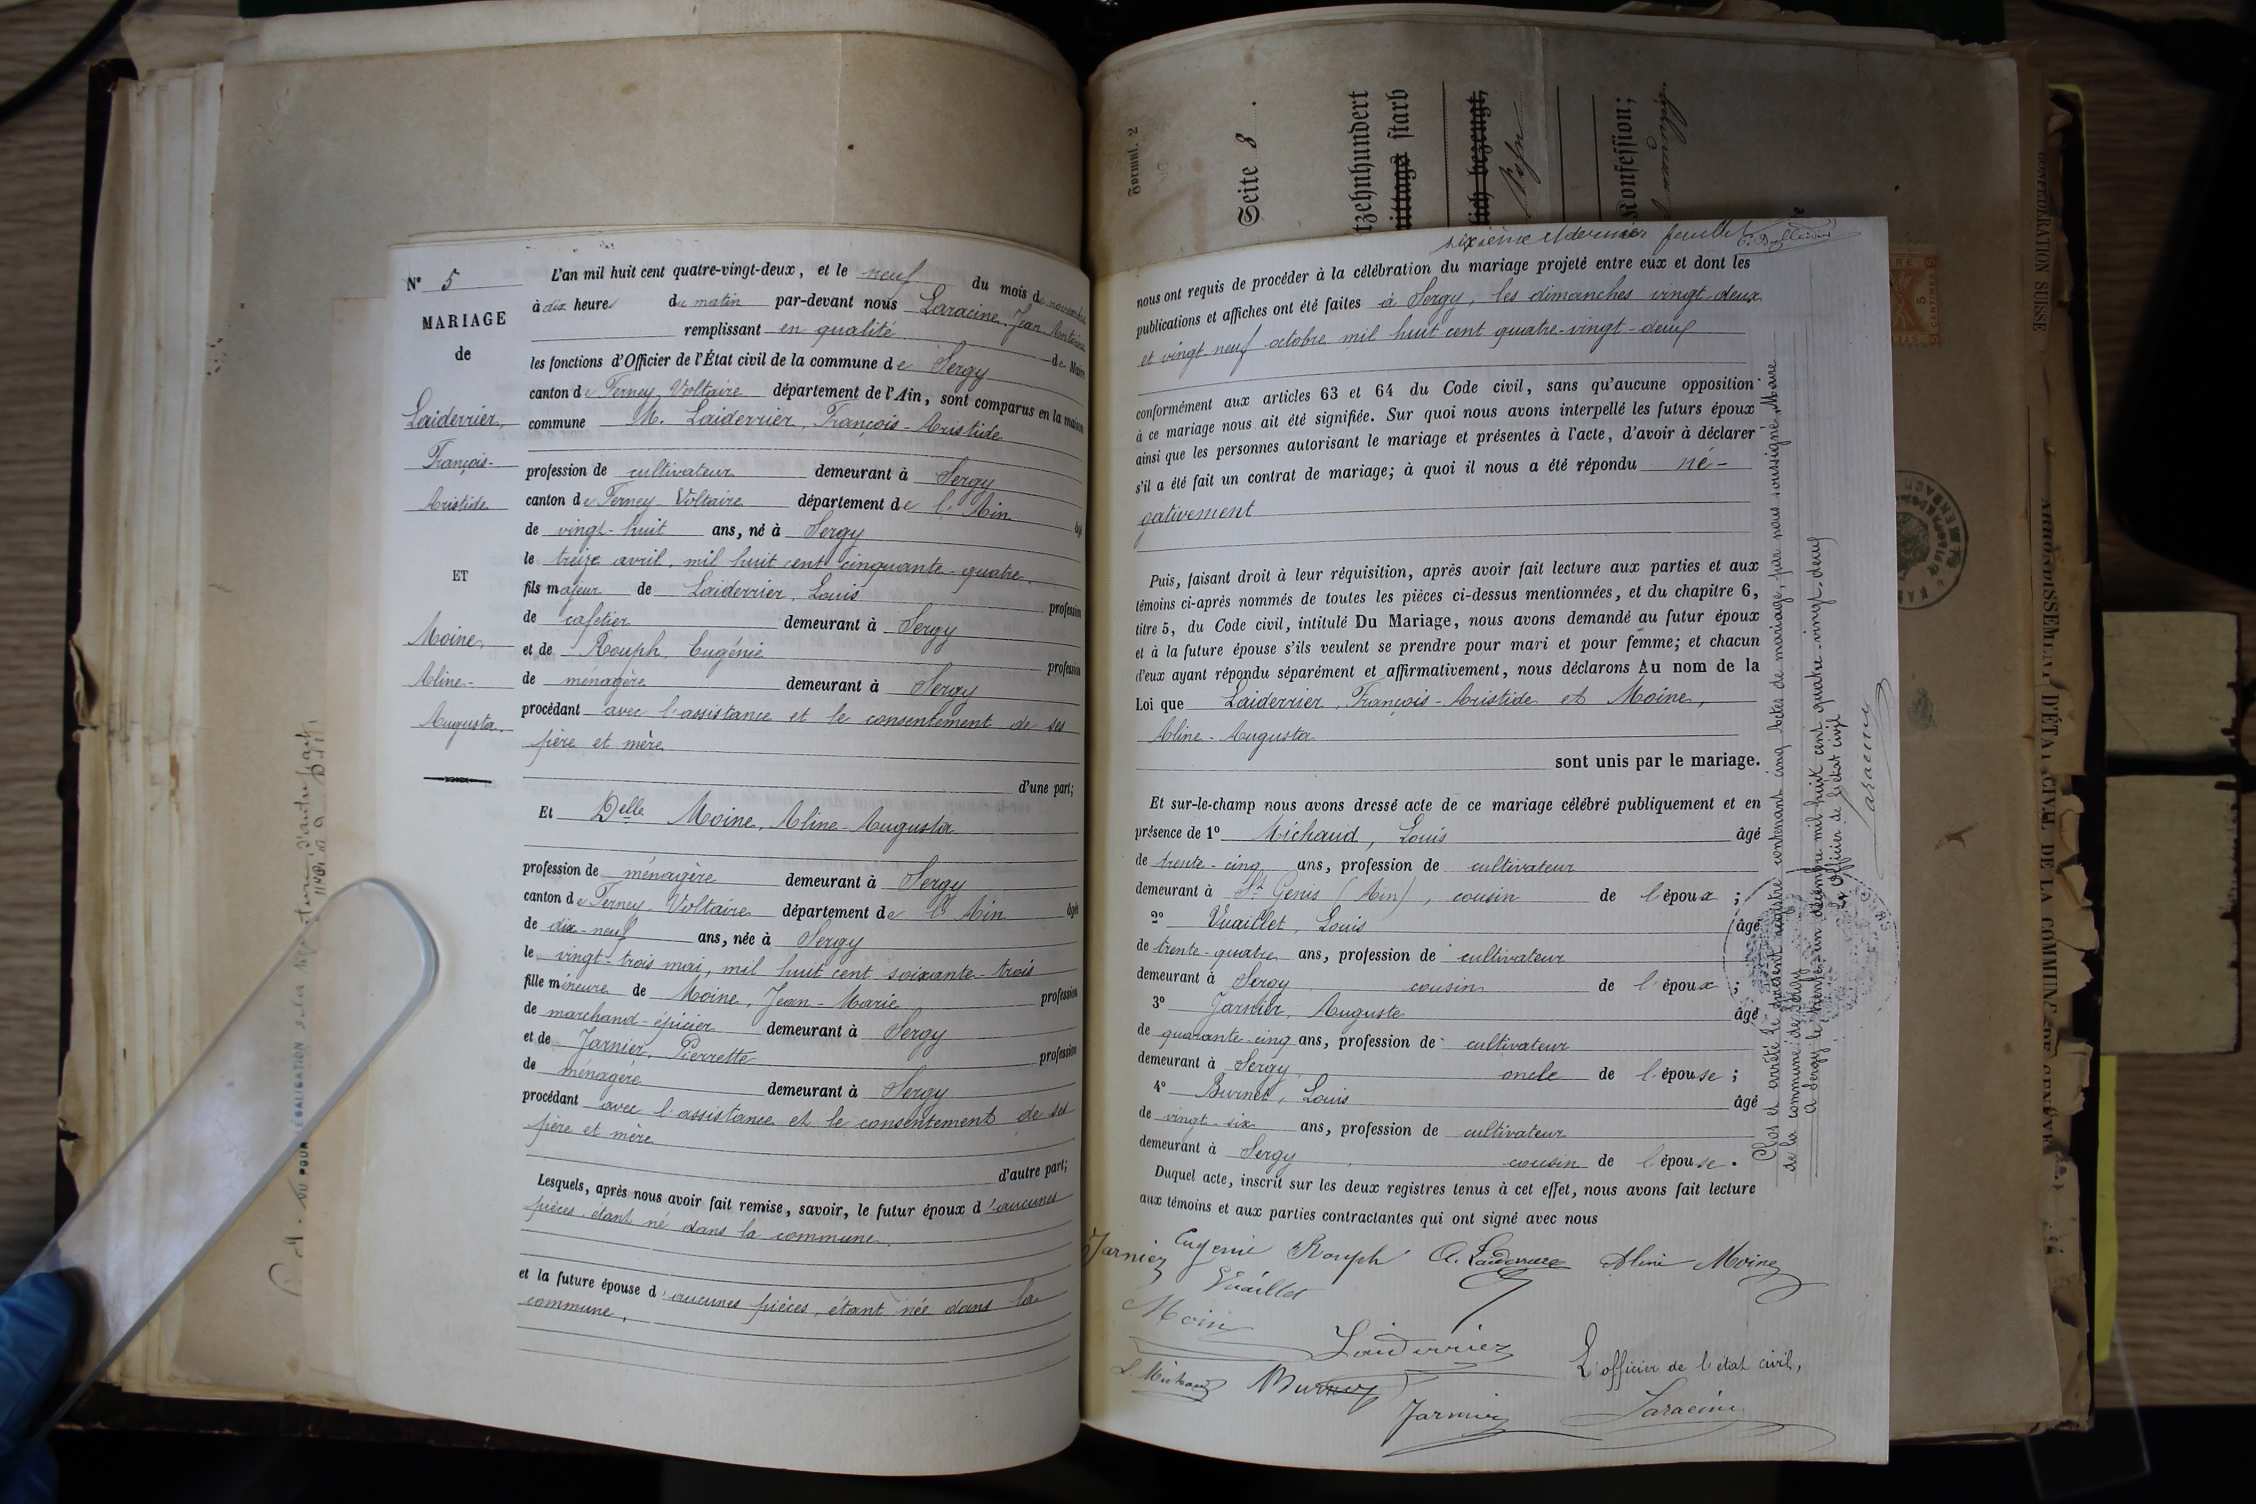 N° 5
MARIAGE
de
Laiderrier,
François-
Aristide
ET
Moine,
Aline-
Augusta.
L'an mil huit cent quatre-vingt-deux, et le neuf du mois de novembre
à dix heures du matin par-devant nous Laracine, Jean
remplissant en qualité de Maire
les fonctions d'Officier de l'État civil de la commune de Sergy
canton de Ferney-Voltaire département de l'Ain, sont comparus en la maison
commune M. Laiderrier, François-Aristide
profession de cultivateur demeurant à Sergy
canton de Ferney-Voltaire département de l'Ain âgé
de vingt-huit ans, né à Sergy
le treize avril, mil huit cent cinquante-quatre,
fils majeur de Laiderrier, Louis profession
de cafetier demeurant à Sergy
et de Rouph, Eugénie profession
de ménagère demeurant à Sergy
procédant avec l'assistance et le consentement de ses
père et mère
d'une part;
Et Delle Moine, Aline-Augusta
profession de ménagère demeurant à Sergy
canton de Ferney-Voltaire département de l'Ain âgée
de dix-neuf ans, née à Sergy
le vingt-trois mai, mil huit cent soixante-trois
fille mineure de Moine, Jean-Marie profession
de marchand-épicier demeurant à Sergy
et de Jarnier, Pierrette profession
de ménagère demeurant à Sergy
procédant avec l'assistance et le consentement de ses
père et mère
d'autre part;
Lesquels, après nous avoir fait remise, savoir, le futur époux d'aucunes
pièces, étant né dans la commune.
et la future épouse d'aucunes pièces, étant née dans la
commune.
VU POUR LÉGALISATION
Formul. 2
Seite 8
tzehnhundert
mittags starb
lich bezeugt,
Konfession;
sixième et dernier feuillet
nous ont requis de procéder à la célébration du mariage projeté entre eux et dont les
publications et affiches ont été faites à Sergy, les dimanches vingt-deux
et vingt neuf octobre mil huit cent quatre-vingt-deux
conformément aux articles 63 et 64 du Code civil, sans qu'aucune opposition
à ce mariage nous ait été signifiée. Sur quoi nous avons interpellé les futurs époux
ainsi que les personnes autorisant le mariage et présentes à l'acte, d'avoir à déclarer
s'il a été fait un contrat de mariage; à quoi il nous a été répondu né-
gativement
Puis, faisant droit à leur réquisition, après avoir fait lecture aux parties et aux
témoins ci-après nommés de toutes les pièces ci-dessus mentionnées, et du chapitre 6,
titre 5, du Code civil, intitulé Du Mariage, nous avons demandé au futur époux
et à la future épouse s'ils veulent se prendre pour mari et pour femme; et chacun
d'eux ayant répondu séparément et affirmativement, nous déclarons Au nom de la
Loi que Laiderrier, François-Aristide et Moine,
Aline-Augusta
sont unis par le mariage.
Et sur-le-champ nous avons dressé acte de ce mariage célébré publiquement et en
présence de 1° Michaud, Louis âgé
de trente-cinq ans, profession de cultivateur
demeurant à St Genis (Ain), cousin de l'époux;
2° Vuaillet, Louis âgé
de trente-quatre ans, profession de cultivateur
demeurant à Sergy cousin de l'époux;
3° Jarnier, Auguste âgé
de quarante-cinq ans, profession de cultivateur
demeurant à Sergy, oncle de l'épouse;
4° Burnet, Louis âgé
de vingt-six ans, profession de cultivateur
demeurant à Sergy, cousin de l'épouse.
Duquel acte, inscrit sur les deux registres tenus à cet effet, nous avons fait lecture
aux témoins et aux parties contractantes qui ont signé avec nous
Jarnier Eugenie Rouph A. Laiderrier Aline Moine
Vuaillet
Moine
Laiderrier
L. Michaud Burnet
Jarnier
L'officier de l'état civil,
Laracine
Clos et arrêté le présent registre contenant cinq actes de mariage, par nous soussigné, Maire
de la commune de Sergy
A Sergy le trente-un décembre mil huit cent quatre-vingt-deux
L'officier de l'état civil
Laracine
CONFÉDÉRATION SUISSE
ARRONDISSEMENT D'ÉTAT CIVIL DE LA COMMUNE DE GENÈVE
5
CENTIMES